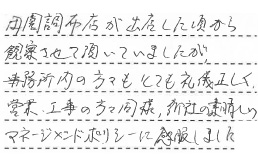 田園調布店が出店した頃から
観察させて頂いていましたが、
事務所内の方々もとても礼儀正しく、
営業、工事の方々同様、御社の素晴しい
マネージメントポリシーに感服しました